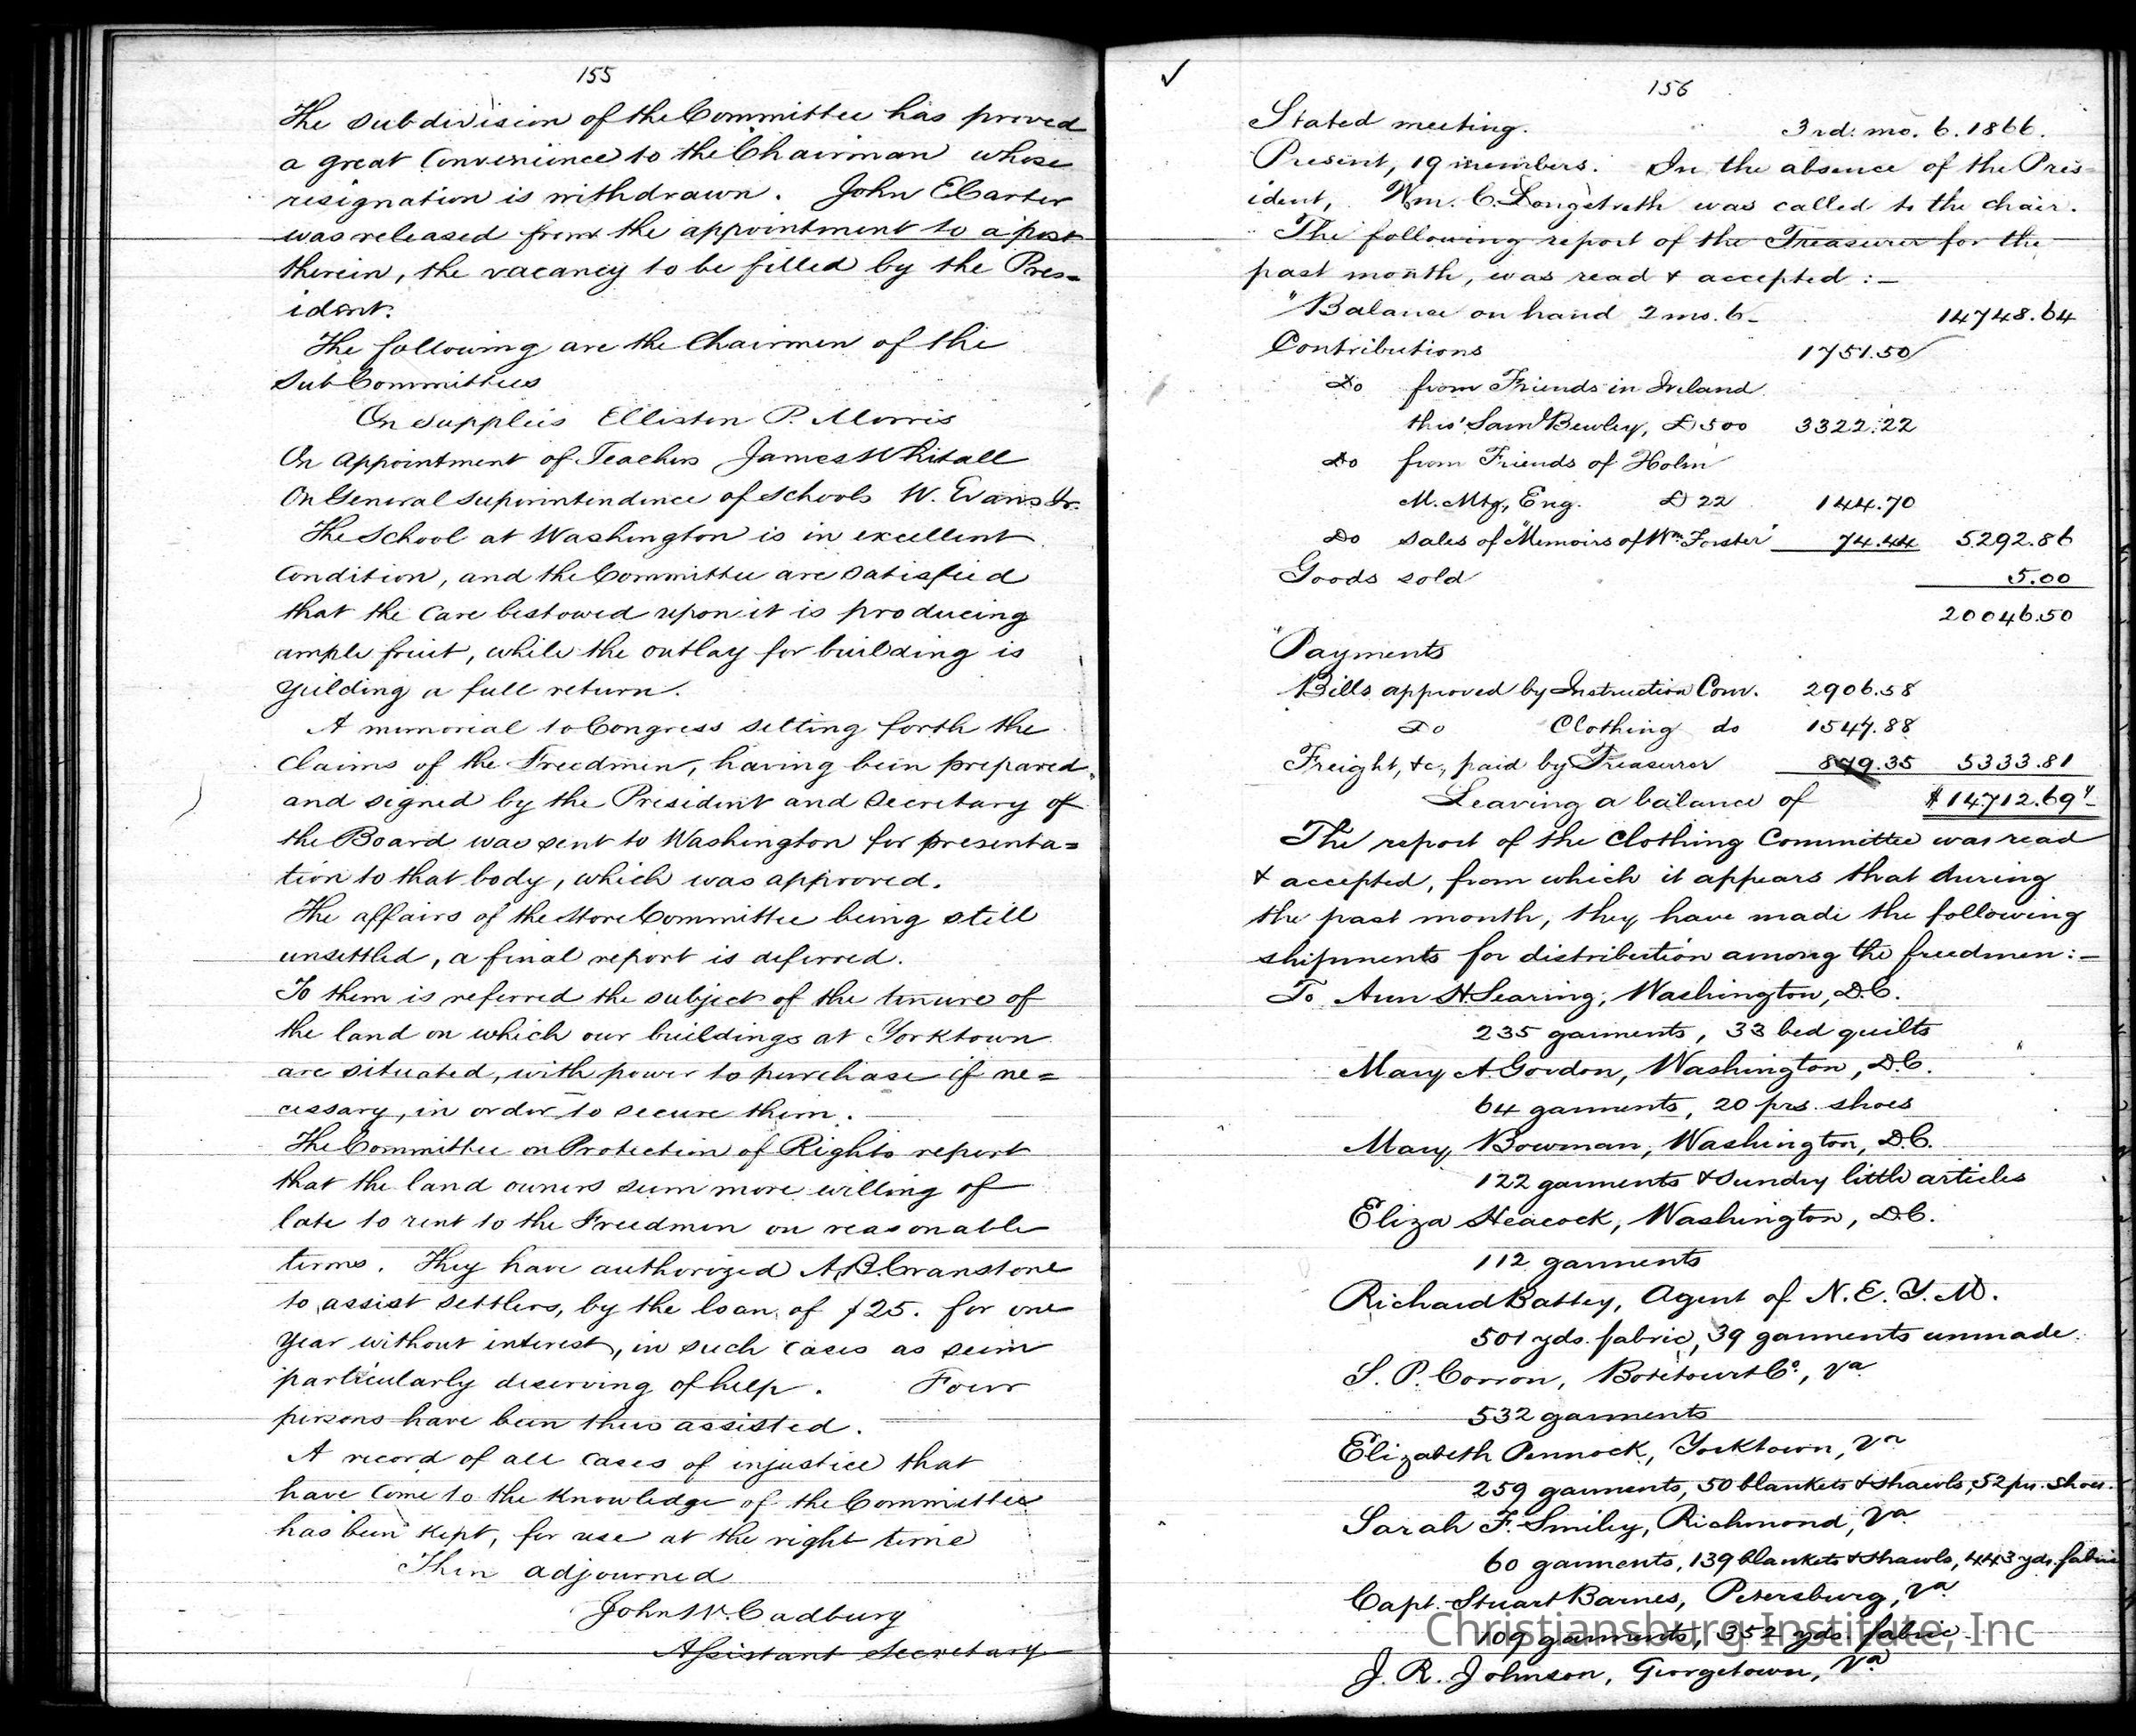 155
The subdivision of the Committee has proved
a great Convenience to the Chairman whose
resignation is withdrawn. John E Carter
was released from the appointment to a post
therein, the vacancy to be filled by the Pres=
ident.
The following are the Chairmen of the
Sub Committees
On Supplies Elliston P. Morris
On Appointment of Teachers James Whitall
On General Superintendence of Schools W. Evans Jr.
The School at Washington is in excellent
Condition, and the Committee are satisfied
that the care bestowed upon it is producing
ample fruit, while the outlay for building is
yielding a full return.
A memorial to Congress setting forth the
claims of the Freedmen, having been prepared
and signed by the President and Secretary of
the Board was sent to Washington for presenta=
tion to that body, which was approved.
The affairs of the Store Committee being still
unsettled, a final report is deferred.
To them is referred the subject of the tenure of
the land on which our buildings at Yorktown
are situated, with power to purchase if ne=
cessary, in order to secure them.
The Committee on Protection of Rights report
that the land owners seem more willing of
late to rent to the Freedmen on reasonable
terms. They have authorized A.B. Cranstone
to assist settlers, by the loan of $25. for one
year without interest, in such cases as seem
particularly deserving of help. Four
persons have been thus assisted.
A record of all cases of injustice that
have come to the knowledge of the Committee
has been kept, for use at the right time
Then adjourned
John W. Cadbury
Assistant Secretary
156
Stated meeting. 3rd. mo. 6. 1866.
Present, 19 members. In the absence of the Pres=
ident, Wm. C. Longstreth was called to the chair.
The following report of the Treasurer for the
past month, was read & accepted :-
"Balance on hand 2 mo. 6- 14748.64
Contributions 1751.50
Do from Friends in Ireland
thro' Saml Bewley, £500 3322.22
Do from Friends of Holm
M. Mtg, Eng. £22 144.70
Do sales of "Memoirs of Wm Forster" 74.44 5292.86
Goods sold 5.00
20046.50
"Payments
Bills approved by Instruction Com. 2906.58
Do Clothing do 1547.88
Freight, &c, paid by Treasurer 879.35 5333.81
Leaving a balance of $14712.69"
The report of the Clothing Committee was read
& accepted, from which it appears that during
the past month, they have made the following
shipments for distribution among the freedmen:-
To Ann H. Searing, Washington, D.C.
235 garments, 33 bed quilts
Mary A. Gordon, Washington, D.C.
64 garments, 20 prs. shoes
Mary Bowman, Washington, D.C.
122 garments & sundry little articles
Eliza Heacock, Washington, D.C.
112 garments
Richard Battey, Agent of N.E.Y.M.
501 yds. fabric, 39 garments unmade.
S. P. Corron, Botetourt Co., Va
532 garments
Elizabeth Pennock, Yorktown, Va
259 garments, 50 blankets & shawls, 52 prs. shoes.
Sarah F. Smiley, Richmond, Va
60 garments, 139 blankets & shawls, 443 yds. fabric
Capt. Stuart Barnes, Petersburg, Va.
109 garments, 352 yds. fabric
J. R. Johnson, Georgetown, Va
Christiansburg Institute, Inc